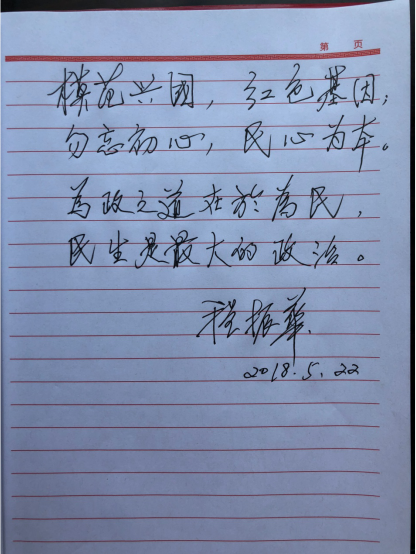 第 页
模范兴國，红色基因；
勿忘初心，民心为本。
為政之道在於為民，
民生是最大的政治。
程振華
2018.5.22